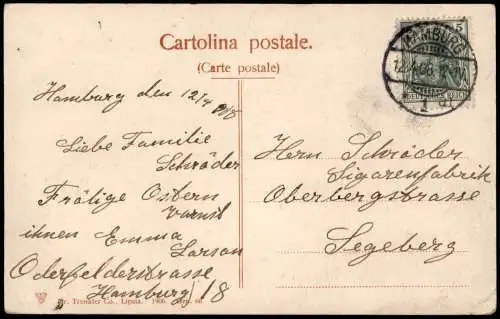 Cartolina postale.
(Carte postale)
HAMBURG
5
DEUTSCHES REICH
Hamburg den 12/4 08
Liebe Familie
Schröder
Frölige Ostern
ihnen Emma
Larson
Oderfelderstrasse
Hamburg 18
Hern Schröder
Sigarenfabrik
Oberbergstrasse
Segeberg
Dr. Trenkler Co., Lipsia. 1906.